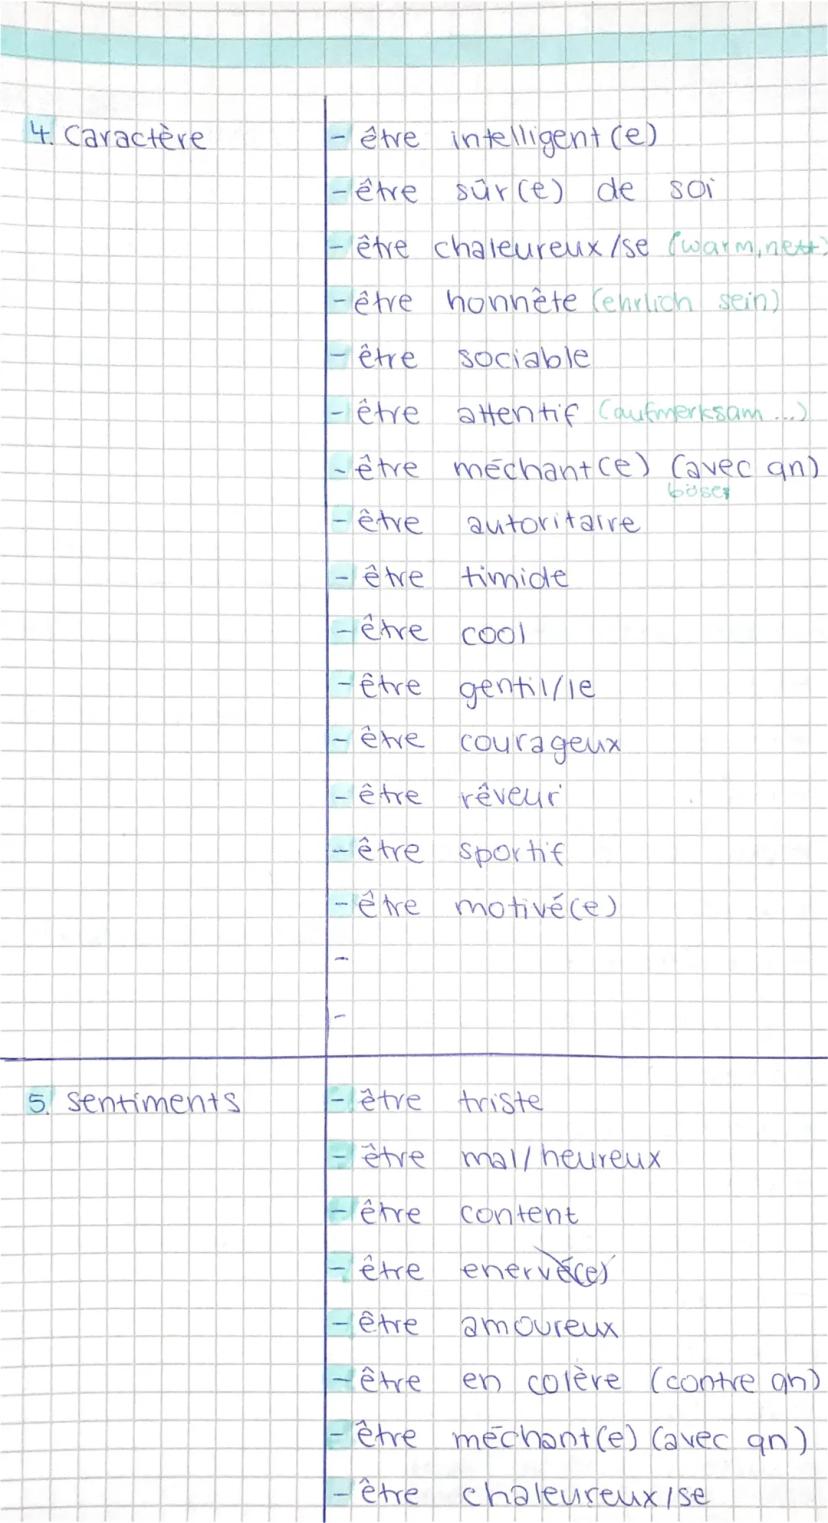 4. Caractère
- être intelligent(e)
- être sûr(e) de soi
- être chaleureux/se (warm, nett)
- être honnête (ehrlich sein)
- être sociable
- être attentif (aufmerksam ...)
- être méchant(e) (avec qn)
böse
- être autoritaire
- être timide
- être cool
- être gentil/le
- être courageux
- être rêveur
- être sportif
- être motivé(e)
-
-
5. Sentiments
- être triste
- être mal/heureux
- être content
- être enervé(e)
- être amoureux
- être en colère (contre qn)
- être méchant(e) (avec qn)
- être chaleureux/se